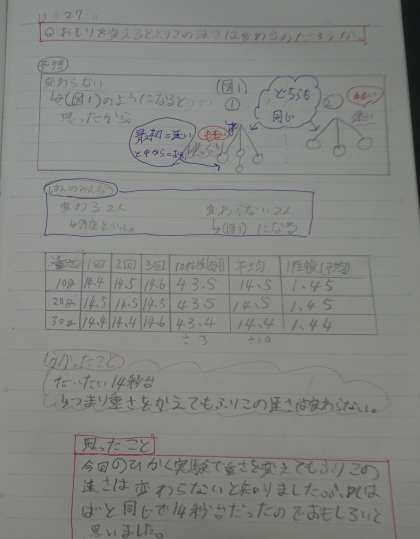 27
Q.おもりを変えるとふりこの速さは変わるのだろうか。
予想
変わらない
↳(図1)のようになると
思ったから
(図1)
①
どちらも
同じ
最初は速い
変わる2人
変わらない2人
↳(図1)になる
重さ 1回 2回 3回 平均
10g 14.4 14.5 14.6 43.5 14.5 1.45
20g 14.5 14.5 14.5 43.5 14.5 1.45
30g 14.4 14.4 14.6 43.4 14.4 1.44
÷3 ÷10
分かったこと
だいたい14秒台
↳つまり重さをかえてもふりこの速さは変わらない。
思ったこと
今回のひかく実験で重さを変えてもふりこの
速さは変わらないと知りました。ふれは
ばと同じで14秒台だったのでおもしろいと
思いました。